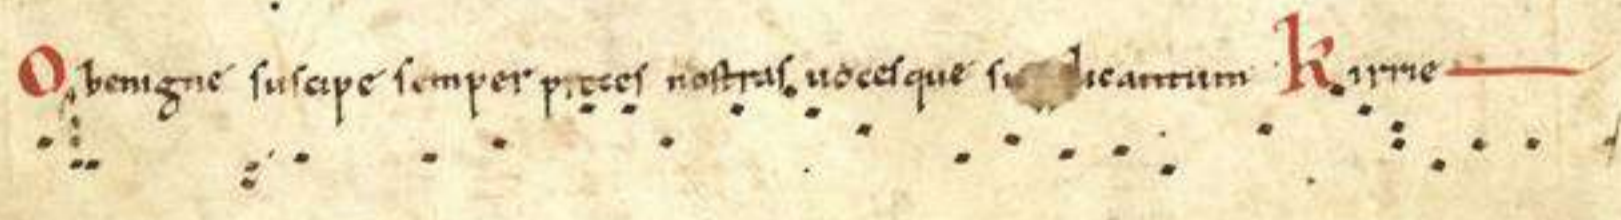 O benigne suscipe semper preces nostras uocesque kirrie